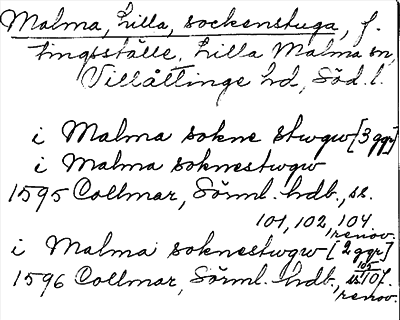 Malma, Lilla, sockenstuga, f.
tingsställe, Lilla Malma sn,
Villåttinge hd, Söd. l.
i Malma sokne stwgw [3 ggr]
i Malma soknestwgw
1595 Collmar, Sörml. hdb., s.
101, 102, 104
, renov.
i Malma soknestwgw [2 ggr]
105
1596 Collmar, Sörml. hdb., s. 107.
, renov.